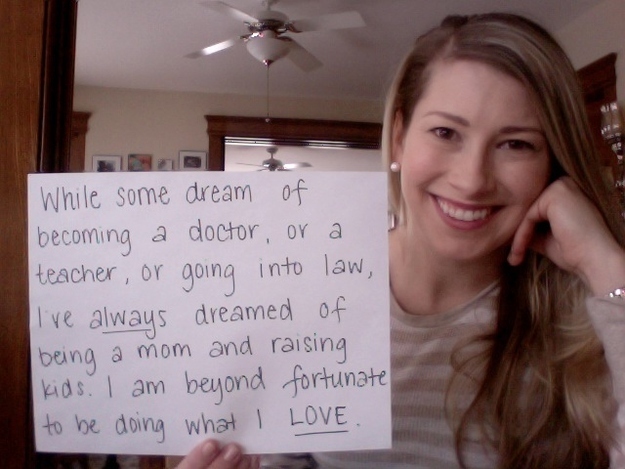 While some dream of
becoming a doctor, or a
teacher, or going into law,
I've always dreamed of
being a mom and raising
kids. I am beyond fortunate
to be doing what I LOVE.